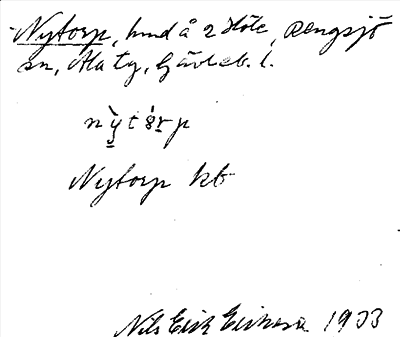 Nytorp, hmd å 2 Höle, Rengsjö
sn, Ala tg, Gävleb. l.
nỳtó̤rp
Nytorp kb
Nils Erik Eriksson 1933